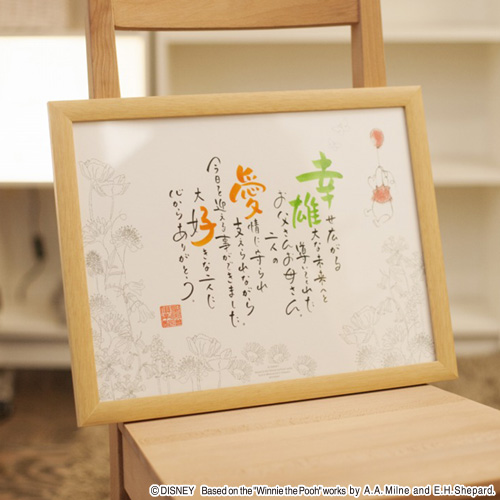 幸せ広がる
雄大な未来へと
導いてくれた
お父さんお母さん。
二人の
愛情に守られ
支えられながら
今日を迎える事ができました。
大好きな二人に
心からありがとう。
©DISNEY Based on the "Winnie the Pooh" works by A.A. Milne and E.H.Shepard.